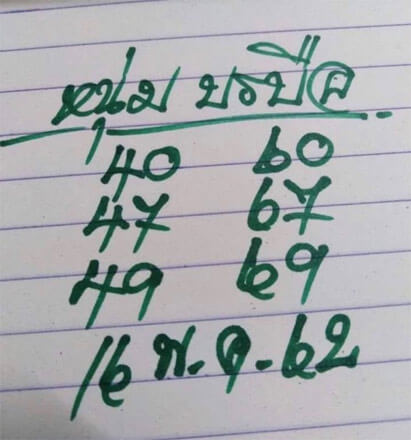 หนุ่ม บรบือ
40 60
47 67
49 69
16 พ.ค.62